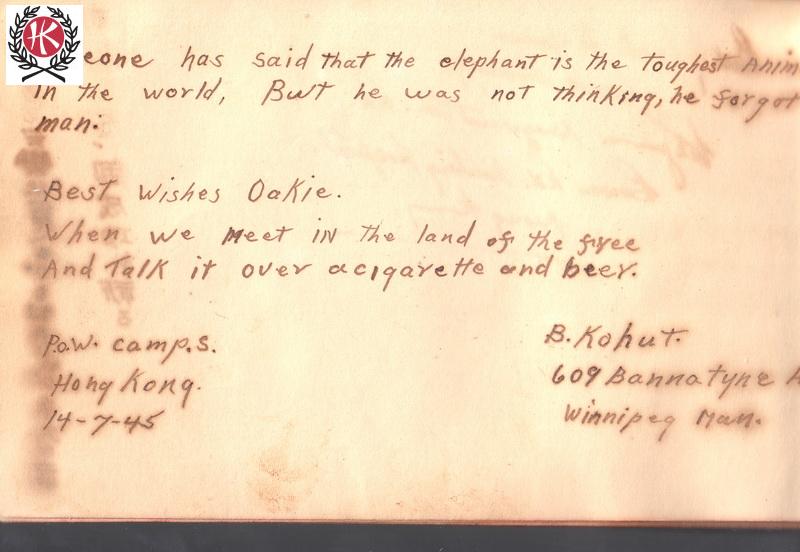 HK
eone has said that the elephant is the toughest Anim
in the world, But he was not thinking, he forgot
man:
Best Wishes Oakie.
When we Meet in the land of the free
And Talk it over a cigarette and beer.
P.o.W. camp, S.
Hong Kong.
14-7-45
B. Kohut.
609 Bannatyne A
Winnipeg Man.